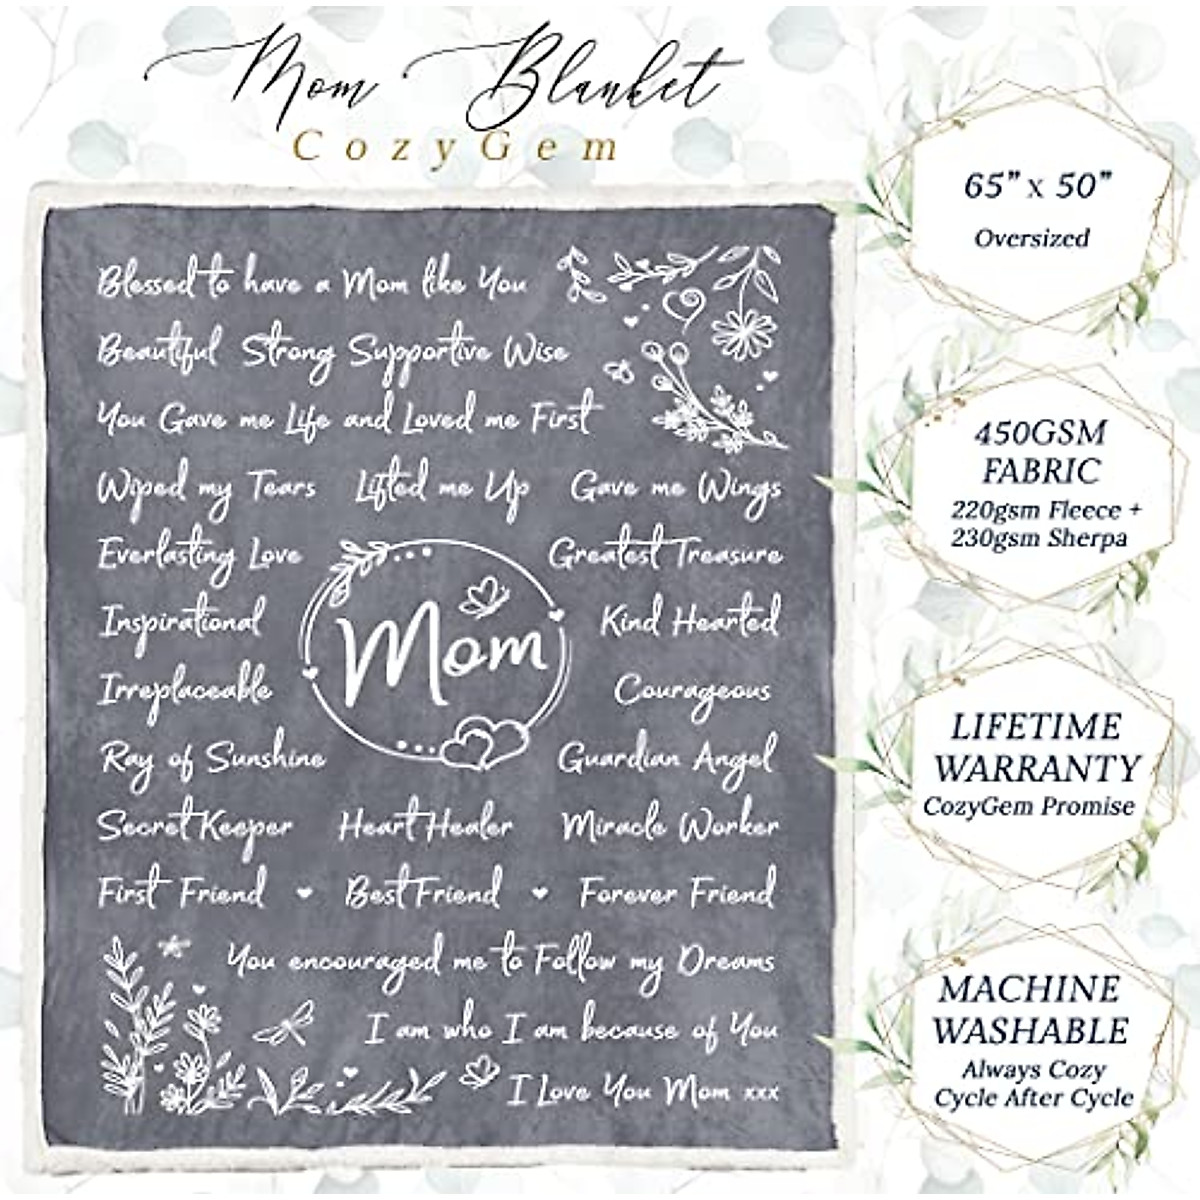 Mom Blanket
CozyGem
Blessed to have a Mom like You
Beautiful Strong Supportive Wise
You Gave me Life and Loved me First
Wiped my Tears Lifted me Up Gave me Wings
Everlasting Love Greatest Treasure
Inspirational Kind Hearted
Mom
Irreplaceable Courageous
Ray of Sunshine Guardian Angel
Secret Keeper Heart Healer Miracle Worker
First Friend ♥ Best Friend ♥ Forever Friend
You encouraged me to Follow my Dreams
I am who I am because of You
I Love You Mom xxx
65" x 50"
Oversized
450GSM
FABRIC
220gsm Fleece +
230gsm Sherpa
LIFETIME
WARRANTY
CozyGem Promise
MACHINE
WASHABLE
Always Cozy
Cycle After Cycle